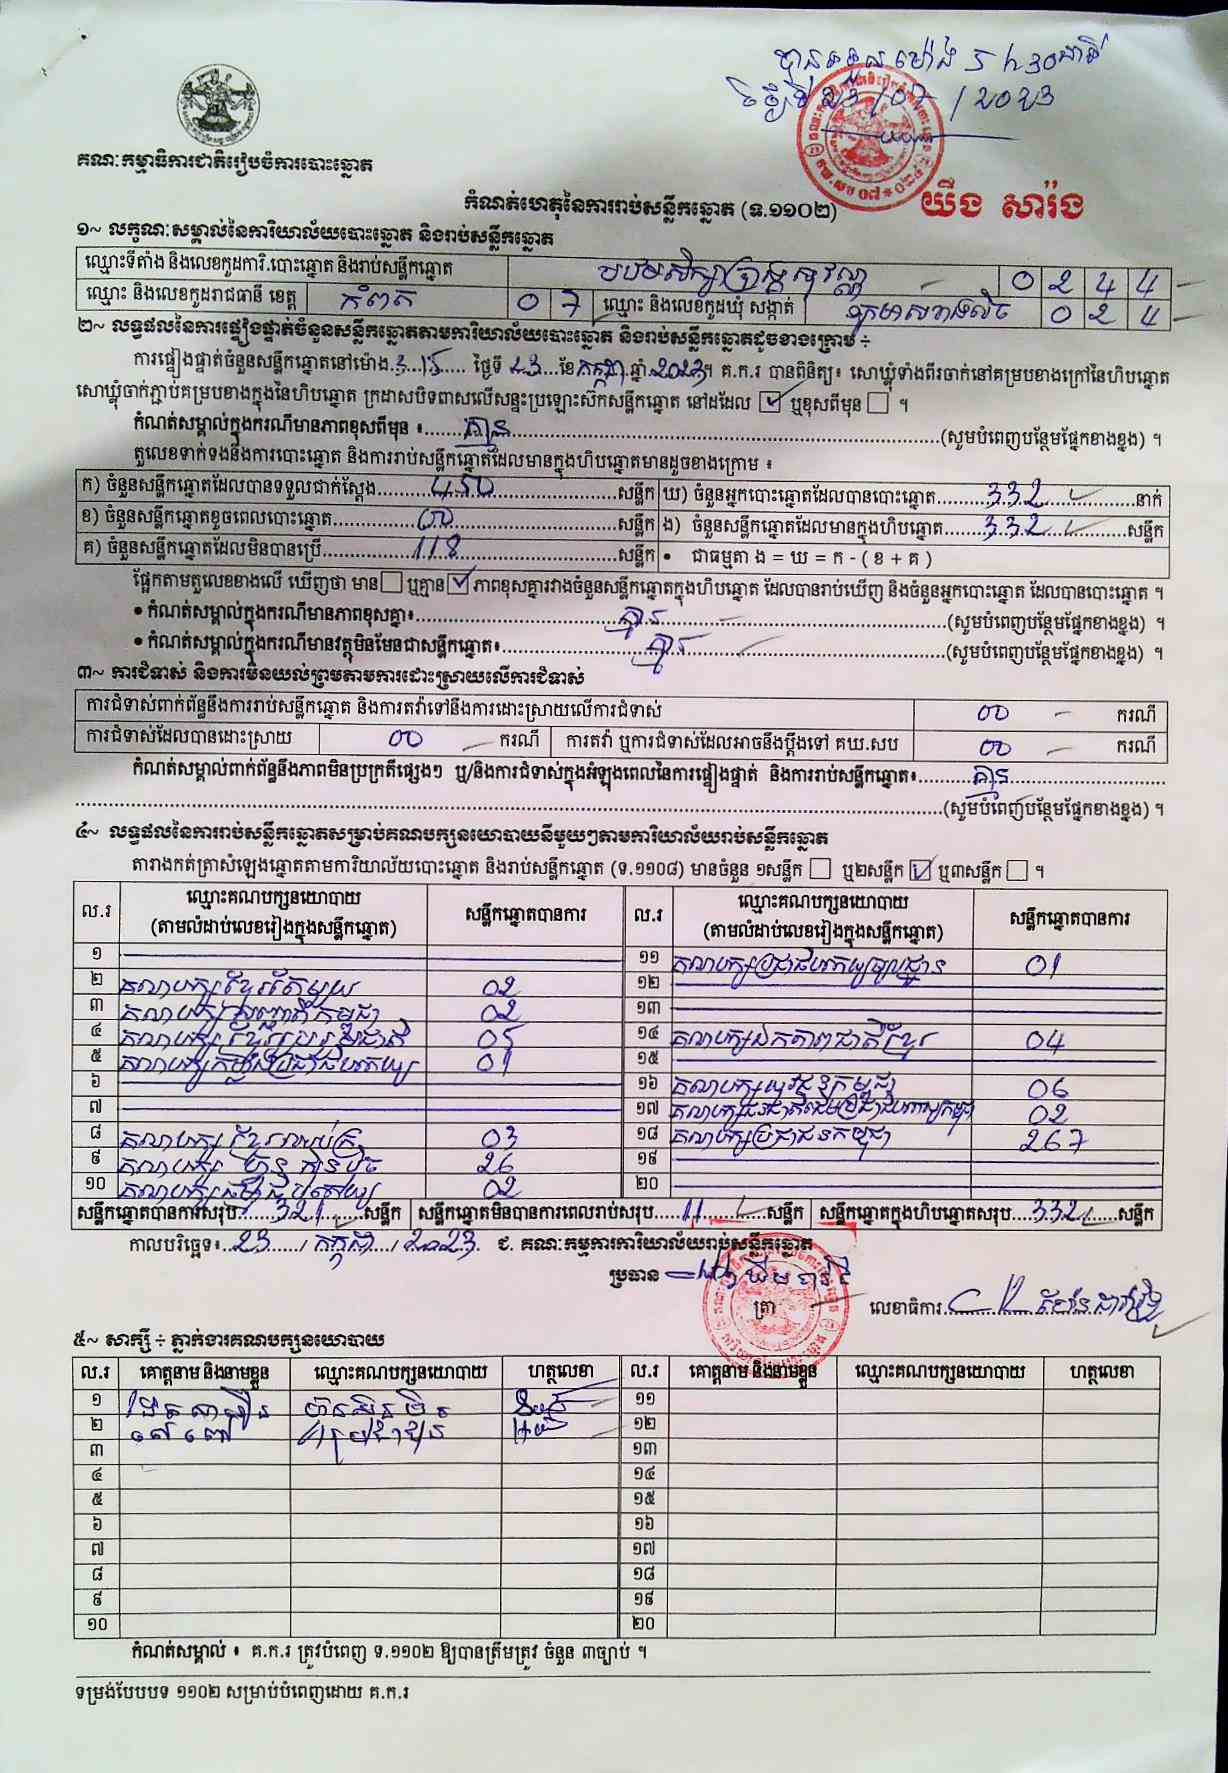 បានទទួលម៉ោង 5 h 30 នាទី
ថ្ងៃទី 23/07/2023
គណៈកម្មាធិការជាតិរៀបចំការបោះឆ្នោត
កំណត់ហេតុនៃការរាប់សន្លឹកឆ្នោត (ទ.១១០២)
យឹង សារ៉ង
១~ លក្ខណៈសម្គាល់នៃការិយាល័យបោះឆ្នោត និងរាប់សន្លឹកឆ្នោត
ឈ្មោះទីតាំង និងលេខកូដការិ.បោះឆ្នោត និងរាប់សន្លឹកឆ្នោត 0 2 4 4
ឈ្មោះ និងលេខកូដរាជធានី ខេត្ត កំពត 0 7 ឈ្មោះ និងលេខកូដឃុំ សង្កាត់ 0 2 4
២~ លទ្ធផលនៃការផ្ទៀងផ្ទាត់ចំនួនសន្លឹកឆ្នោតតាមការិយាល័យបោះឆ្នោត និងរាប់សន្លឹកឆ្នោតដូចខាងក្រោម ÷
ការផ្ទៀងផ្ទាត់ចំនួនសន្លឹកឆ្នោតនៅម៉ោង 3 15 ថ្ងៃទី 23 ខែ កក្កដា ឆ្នាំ 2023។ គ.ក.រ បានពិនិត្យ៖ សោឃ្លុំទាំងពីរចាក់នៅគម្របខាងក្រៅនៃហិបឆ្នោត
សោឃ្លុំចាក់ភ្ជាប់គម្របខាងក្នុងនៃហិបឆ្នោត ក្រដាសបិទពាសលើសន្ទះប្រឡោះស៊កសន្លឹកឆ្នោត នៅដដែល ☑ ឬខុសពីមុន ☐ ។
កំណត់សម្គាល់ក្នុងករណីមានភាពខុសពីមុន ៖ គ្មាន (សូមបំពេញបន្ថែមផ្នែកខាងខ្នង) ។
តួលេខទាក់ទងនឹងការបោះឆ្នោត និងការរាប់សន្លឹកឆ្នោតដែលមានក្នុងហិបឆ្នោតមានដូចខាងក្រោម ៖
ក) ចំនួនសន្លឹកឆ្នោតដែលបានទទួលជាក់ស្តែង 450 សន្លឹក ឃ) ចំនួនអ្នកបោះឆ្នោតដែលបានបោះឆ្នោត 332 នាក់
ខ) ចំនួនសន្លឹកឆ្នោតខូចពេលបោះឆ្នោត 00 សន្លឹក ង) ចំនួនសន្លឹកឆ្នោតដែលមានក្នុងហិបឆ្នោត 332 សន្លឹក
គ) ចំនួនសន្លឹកឆ្នោតដែលមិនបានប្រើ 118 សន្លឹក • ជាធម្មតា ង = ឃ = ក - ( ខ + គ )
ផ្អែកតាមតួលេខខាងលើ ឃើញថា មាន ☐ ឬគ្មាន ☑ ភាពខុសគ្នារវាងចំនួនសន្លឹកឆ្នោតក្នុងហិបឆ្នោត ដែលបានរាប់ឃើញ និងចំនួនអ្នកបោះឆ្នោត ដែលបានបោះឆ្នោត ។
• កំណត់សម្គាល់ក្នុងករណីមានភាពខុសគ្នា៖ គ្មាន (សូមបំពេញបន្ថែមផ្នែកខាងខ្នង) ។
• កំណត់សម្គាល់ក្នុងករណីមានវត្ថុមិនមែនជាសន្លឹកឆ្នោត៖ គ្មាន (សូមបំពេញបន្ថែមផ្នែកខាងខ្នង) ។
៣~ ការជំទាស់ និងការមិនយល់ព្រមតាមការដោះស្រាយលើការជំទាស់
ការជំទាស់ពាក់ព័ន្ធនឹងការរាប់សន្លឹកឆ្នោត និងការតវ៉ាទៅនឹងការដោះស្រាយលើការជំទាស់ 00 ករណី
ការជំទាស់ដែលបានដោះស្រាយ 00 ករណី ការតវ៉ា ឬការជំទាស់ដែលអាចនឹងប្តឹងទៅ គឃ.សប 00 ករណី
កំណត់សម្គាល់ពាក់ព័ន្ធនឹងភាពមិនប្រក្រតីផ្សេងៗ ឬ/និងការជំទាស់ក្នុងអំឡុងពេលនៃការផ្ទៀងផ្ទាត់ និងការរាប់សន្លឹកឆ្នោត៖ គ្មាន
(សូមបំពេញបន្ថែមផ្នែកខាងខ្នង) ។
៤~ លទ្ធផលនៃការរាប់សន្លឹកឆ្នោតសម្រាប់គណបក្សនយោបាយនីមួយៗតាមការិយាល័យរាប់សន្លឹកឆ្នោត
តារាងកត់ត្រាសំឡេងឆ្នោតតាមការិយាល័យបោះឆ្នោត និងរាប់សន្លឹកឆ្នោត (ទ.១១០៨) មានចំនួន ១សន្លឹក ☐ ឬ២សន្លឹក ☑ ឬ៣សន្លឹក ☐ ។
ល.រ ឈ្មោះគណបក្សនយោបាយ (តាមលំដាប់លេខរៀងក្នុងសន្លឹកឆ្នោត) សន្លឹកឆ្នោតបានការ ល.រ ឈ្មោះគណបក្សនយោបាយ (តាមលំដាប់លេខរៀងក្នុងសន្លឹកឆ្នោត) សន្លឹកឆ្នោតបានការ
១ ១១ គណបក្សប្រជាធិបតេយ្យមូលដ្ឋាន 01
២ គណបក្សខ្មែរតែមួយ 02 ១២
៣ គណបក្ស កម្ពុជា 02 ១៣
៤ គណបក្សខ្មែរ ជាតិ 05 ១៤ គណបក្សឯកភាពជាតិខ្មែរ 04
៥ គណបក្សកម្លាំងប្រជាធិបតេយ្យ 01 ១៥
៦ ១៦ គណបក្សយុវជនកម្ពុជា 06
៧ ១៧ គណបក្ស 02
៨ គណបក្ស ខ្មែរ 03 ១៨ គណបក្សប្រជាជនកម្ពុជា 267
៩ គណបក្ស ហ្វ៊ុនស៊ិនប៉ិច 26 ១៩
១០ គណបក្ស 02 ២០
សន្លឹកឆ្នោតបានការសរុប 321 សន្លឹក សន្លឹកឆ្នោតមិនបានការពេលរាប់សរុប 11 សន្លឹក សន្លឹកឆ្នោតក្នុងហិបឆ្នោតសរុប 332 សន្លឹក
កាលបរិច្ឆេទ៖ 23 / កក្កដា / 2023 ជ. គណៈកម្មការការិយាល័យរាប់សន្លឹកឆ្នោត
ប្រធាន ត្រា លេខាធិការ
៥~ សាក្សី ÷ ភ្នាក់ងារគណបក្សនយោបាយ
ល.រ គោត្តនាម និងនាមខ្លួន ឈ្មោះគណបក្សនយោបាយ ហត្ថលេខា ល.រ គោត្តនាម និងនាមខ្លួន ឈ្មោះគណបក្សនយោបាយ ហត្ថលេខា
១ ១១
២ ១២
៣ ១៣
៤ ១៤
៥ ១៥
៦ ១៦
៧ ១៧
៨ ១៨
៩ ១៩
១០ ២០
កំណត់សម្គាល់ ៖ គ.ក.រ ត្រូវបំពេញ ទ.១១០២ ឱ្យបានត្រឹមត្រូវ ចំនួន ៣ច្បាប់ ។
ទម្រង់បែបបទ ១១០២ សម្រាប់បំពេញដោយ គ.ក.រ